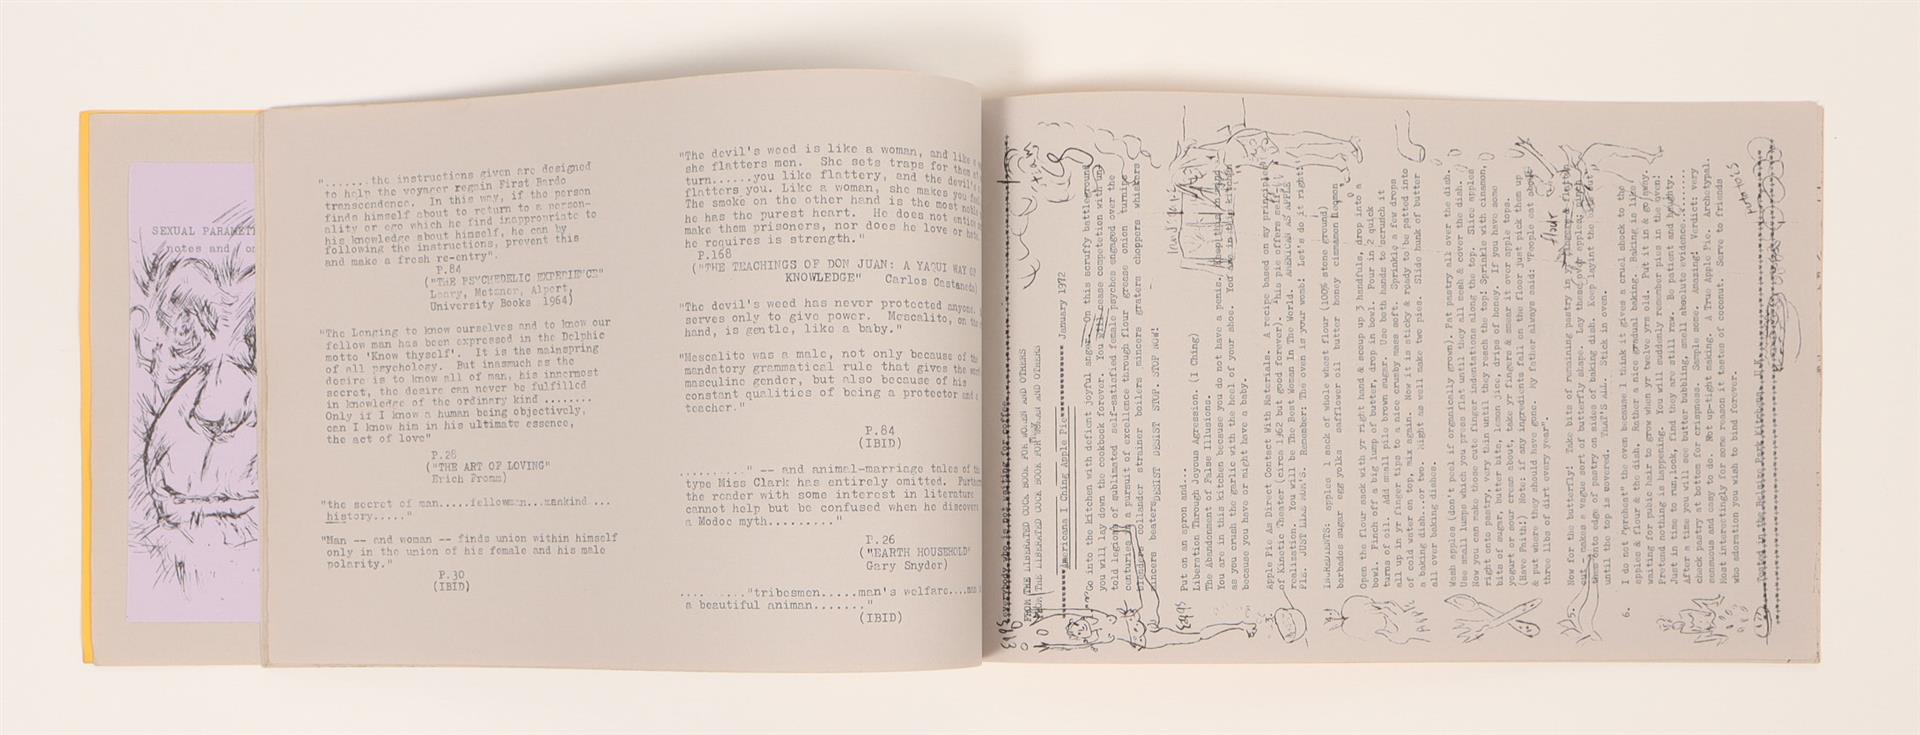 SEXUAL PARAMET
notes and
".......the instructions given are designed
to help the voyager regain First Bardo
transcendence. In this way, if the person
finds himself about to return to a person-
ality or ego which he find inappropriate to
his knowledge about himself, he can by
following the instructions, prevent this
and make a fresh re-entry".
P.84
("THE PSYCHEDELIC EXPERIENCE"
Leary, Metzner, Alpert,
University Books 1964)
"The Longing to know ourselves and to know our
fellow man has been expressed in the Delphic
motto 'Know thyself'. It is the mainspring
of all psychology. But inasmuch as the
desire is to know all of man, his innermost
secret, the desire can never be fulfilled
in knowledge of the ordinary kind ........
Only if I know a human being objectively,
can I know him in his ultimate essence,
the act of love"
P.28
("THE ART OF LOVING"
Erich Fromm)
"the secret of man....fellowman...mankind ...
history....."
"Man -- and woman -- finds union within himself
only in the union of his female and his male
polarity."
P.30
(IBID)
"The devil's weed is like a woman, and like a
she flatters men. She sets traps for them at
turn......you like flattery, and the devil's
flatters you. Like a woman, she makes you feel
The smoke on the other hand is the most noble
he has the purest heart. He does not entice
make them prisoners, nor does he love or hate
he requires is strength."
P.168
("THE TEACHINGS OF DON JUAN: A YAQUI WAY OF
KNOWLEDGE" Carlos Castaneda)
"The devil's weed has never protected anyone.
serves only to give power. Mescalito, on the
hand, is gentle, like a baby."
"Mescalito was a male, not only because of the
mandatory grammatical rule that gives the word
masculine gender, but also because of his
constant qualities of being a protector and a
teacher."
P.84
(IBID)
.........." -- and animal-marriage tales of the
type Miss Clark has entirely omitted. Furthe
the reader with some interest in literature
cannot help but be confused when he discovers
a Modoc myth.........."
P.26
("EARTH HOUSEHOLD"
Gary Snyder)
.... ....."tribesmen.....man's welfare....man
a beautiful animan......."
(IBID)
Eggs
FROM THE LIBERATED COOK BOOK FOR WOMEN AND OTHERS
Americana I Ching Apple Pie January 1972
Go into the kitchen with deficnt joyful anger. On this scruffy battleground
you will lay down the cookbook forever. You will cease competetion with un-
told legions of sublimated self-satisfied female psyches engaged over the
centuries in a pursuit of excellence through flour grease onion turnips
blenders collander strainer boilers mincers graters choppers whiskers
mincers beaters DESIST DESIST STOP. STOP NOW!
Eggs
Put on an apron and...
Liberation Through Joyous Agression. (I Ching)
The Abandonment of False Illusions.
You are in this kitchen because you do not have a penis.
as you crush the garlic with the heel of your shoe. You are in the kitchen
because you have or might have a baby.
Apple Pie As Direct Contact With Material. A recipe based on my principles
of Kinetic Theater (circa 1962 but good forever). This pie offers self-
realization. You will be The Best Woman In The World. AMERICAN AS APPLE
PIE. JUST LIKE MOM'S. Remember: The oven is your womb! Let's do it right!
INGREDIENTS: apples 1 sack of whole wheat flour (100% stone ground)
barbados sugar egg yolks safflower oil butter honey cinnamon lemons
Open the flour sack with yr right hand & scoup up 3 handfuls, drop into a
bowl. Pinch off a big lump of butter, drop in bowl. Pour in 2 quick
turns of oil. Add small pile brown sugar. Use both hands to scrunch it
all up in yr finger tips to a nice crumby mass soft. Sprinkle a few drops
of cold water on top, mix again. Now it is sticky & ready to be patted into
a baking dish...or two. Might as well make two pies. Slide hunk of butter
all over baking dishes.
Wash apples (don't peel if organically grown). Pat pastry all over the dish.
Use small lumps which you press flat until they all mesh & cover the dish.
Now you can make those cute finger indentations along the top. Slice apples
right onto pastry, very thin until they reach the top! Sprinkle with cinnamon,
bits of sugar, butter bits, lemon jce, drips of honey. If you have some
yogurt or sour cream about, take yr fingers & smear it over apple tops.
(Have Faith!) Note: if any ingredients fall on the floor just pick them up
& put where they should have gone. My father always said: "People eat about
three lbs of dirt every year".
flour
Now for the butterfly! Take bits of remaining pastry in yr hands & flatten
out - makes a vague sort of butterfly shape. Lay these over apples; pinch
them onto edge of pastry on sides of baking dish. Keep laying them out
until the top is covered. THAT'S ALL. Stick in oven.
6.
I do not "preheat" the oven because I think it gives a cruel shock to the
apples & flour & the dish. Rather a nice gradual baking. Baking is like
waiting for pubic hair to grow when you're twelve yrs old. Put it in & go away.
Pretend nothing is happening. You will suddenly remember pies in the oven!
Just in time to run, look, find they are still raw. Be patient and haughty.
After a time you will see butter bubbling, small absolute evidence......
check pastry at bottom for crispness. Sample some. Amazing! Verdict: very
sensuous and easy to do. Not up-tight making. A True Apple Pie. Archetypal.
Most interestingly for some reason it tastes of coconut. Serve to friends
who adoration you wish to bind forever.